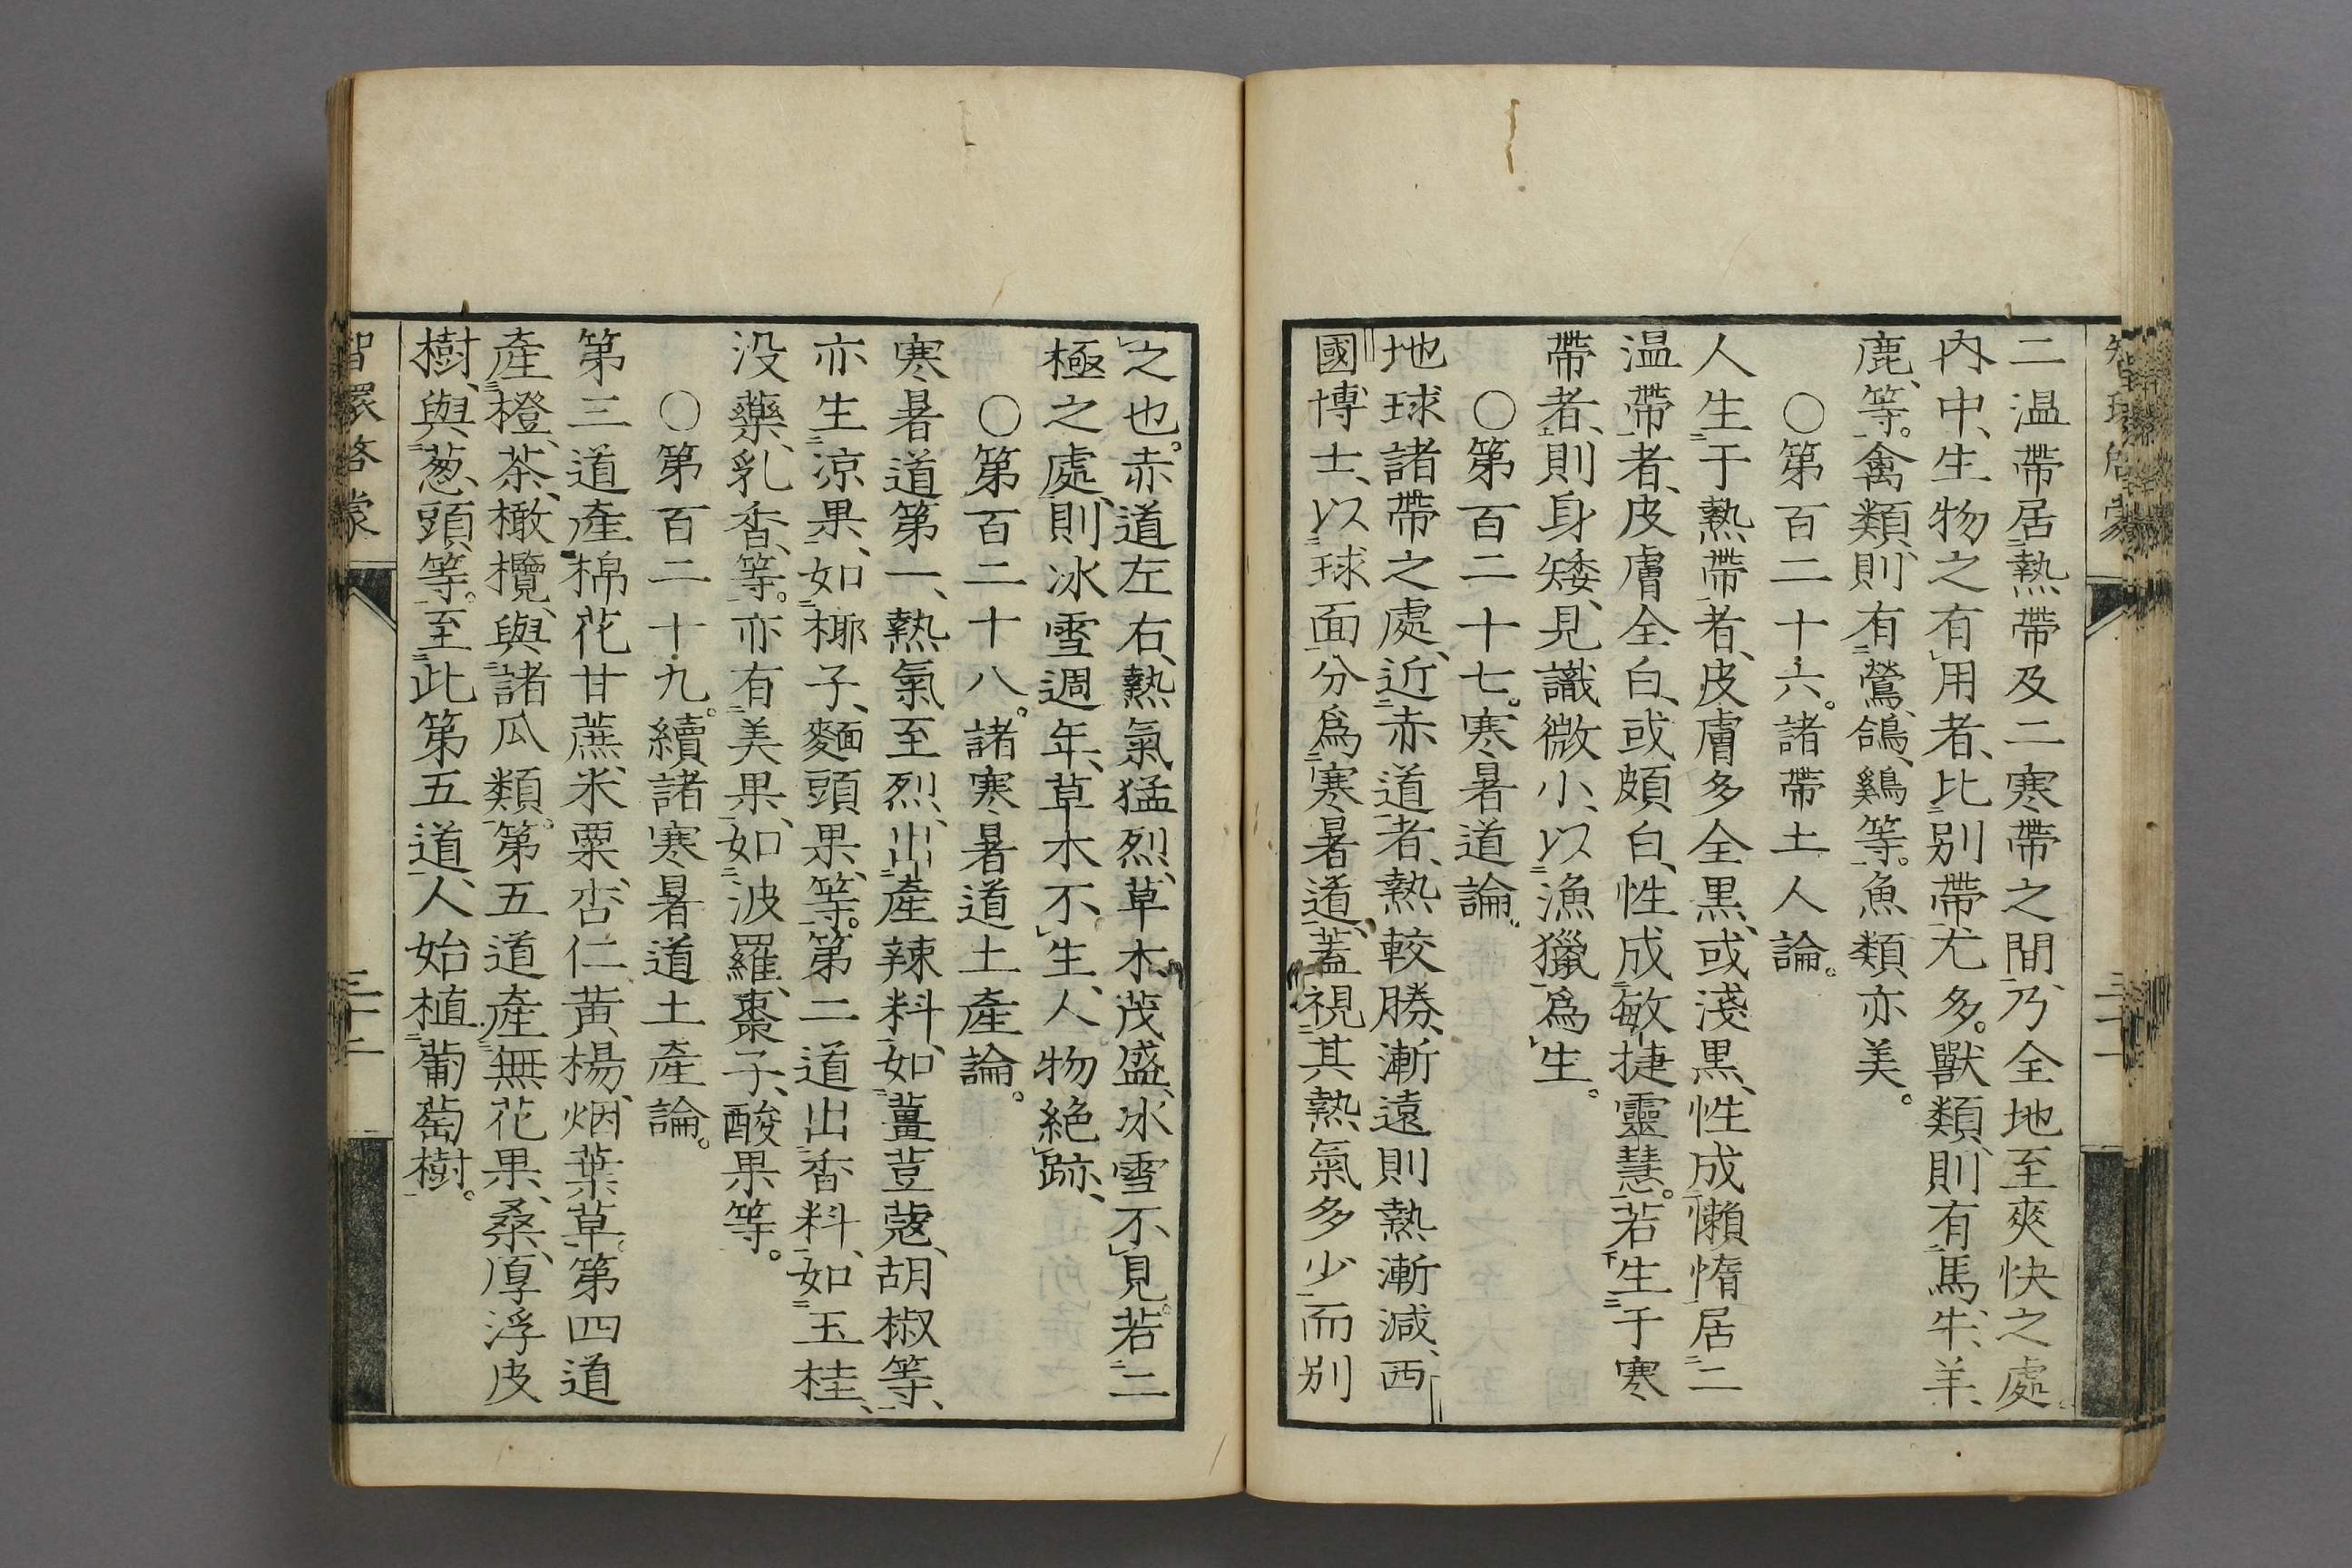 智環啓蒙
二温帶居熱帶及二寒帶之間、乃全地至爽快之處。
內中、生物之有用者、比別帶尤多。獸類、則有馬、牛、羊、
鹿、等。禽類、則有鶯、鴿、鷄等。魚類亦美。
○第百二十六。諸帶土人論。
人生于熱帶者、皮膚多全黒、或淺黒、性成懶惰居二
温帶者、皮膚全白、或頗白、性成敏捷靈慧。若生于寒
帶者、則身矮、見識微小、以漁獵爲生。
○第百二十七。寒暑道論。
地球諸帶之處、近赤道者、熱較勝、漸遠則熱漸減、西
國博士、以球面分爲寒暑道、蓋視其熱氣多少而別
之也。赤道左右、熱氣猛烈、草木茂盛、冰雪不見。若二
極之處、則冰雪週年、草木不生、人物絶跡、
○第百二十八。諸寒暑道土產論。
寒暑道第一、熱氣至烈、出產辣料、如薑荳蔻、胡椒等、
亦生涼果、如椰子、麵頭果、等。第二道出香料、如玉桂、
没藥、乳香、等。亦有美果、如波羅、棗子、酸果等。
○第百二十九。續諸寒暑道土產論。
第三道產棉花甘蔗、米粟、杏仁黃楊、烟葉草。第四道
產橙、茶、橄欖、與諸瓜類。第五道產無花果、桑、厚浮皮
樹、與葱頭、等。至此第五道、人始植葡萄樹。
智環啓蒙